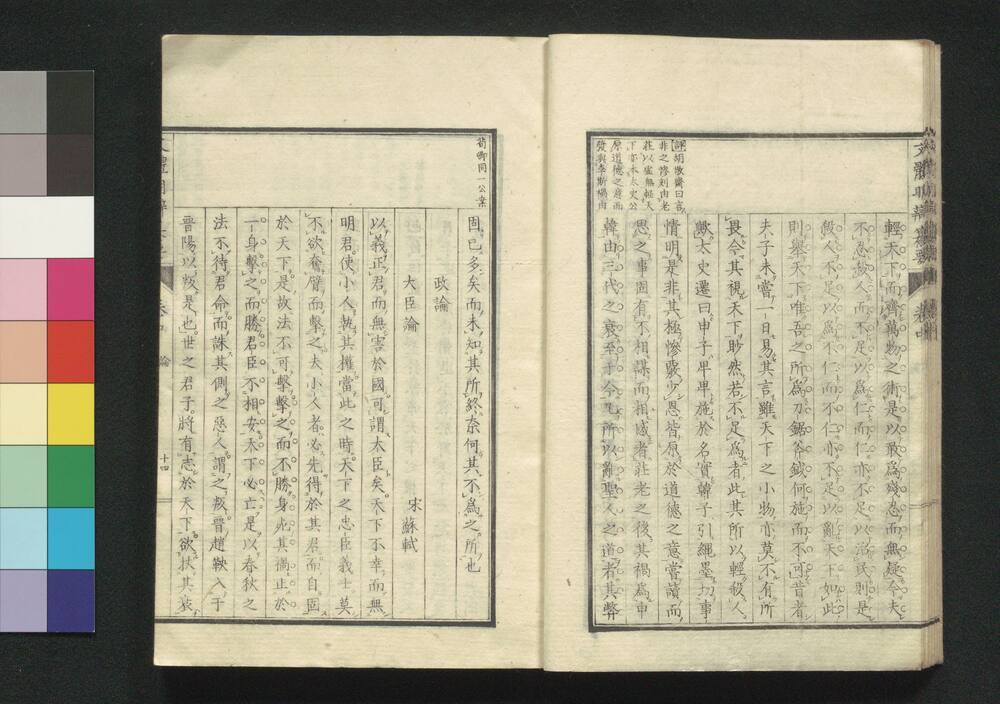 輕天下而齊萬物之術是以敢爲殘忍而無疑今夫
不忍殺人而不足以爲仁而仁亦不足以治民則是
殺人不足以爲不仁而不仁亦不足以亂天下如此
則擧天下唯吾之所爲刀鋸斧鉞何施而不可昔者
夫子未嘗一日易其言雖天下之小物亦莫不有所
畏今其視天下眇然若不足爲者此其所以輕殺人
歟太史遷曰申子卑卑施於名實韓子引繩墨切事
情明是非其極慘覈少恩皆原於道德之意嘗讀而
思之事固有不相謀而相感者莊老之後其禍爲申
韓由三代之衰至于今凡所以亂聖人之道者其弊
固已多矣而未知其所終奈何其不爲之所也
荀卿同一公案
政論
大臣論
宋蘇軾
以義正君而無害於國可謂大臣矣天下不幸而無
明君使小人執其權當此之時天下之忠臣義士莫
不欲奮臂而擊之夫小人者必先得於其君而自固
於天下是故法不可擊擊之而不勝身死其禍止於
一身擊之而勝君臣不相安天下必亡是以春秋之
法不待君命而誅其側之惡人謂之叛晉趙鞅入于
晉陽以叛是也世之君子將有志於天下欲扶其衰
論
十四